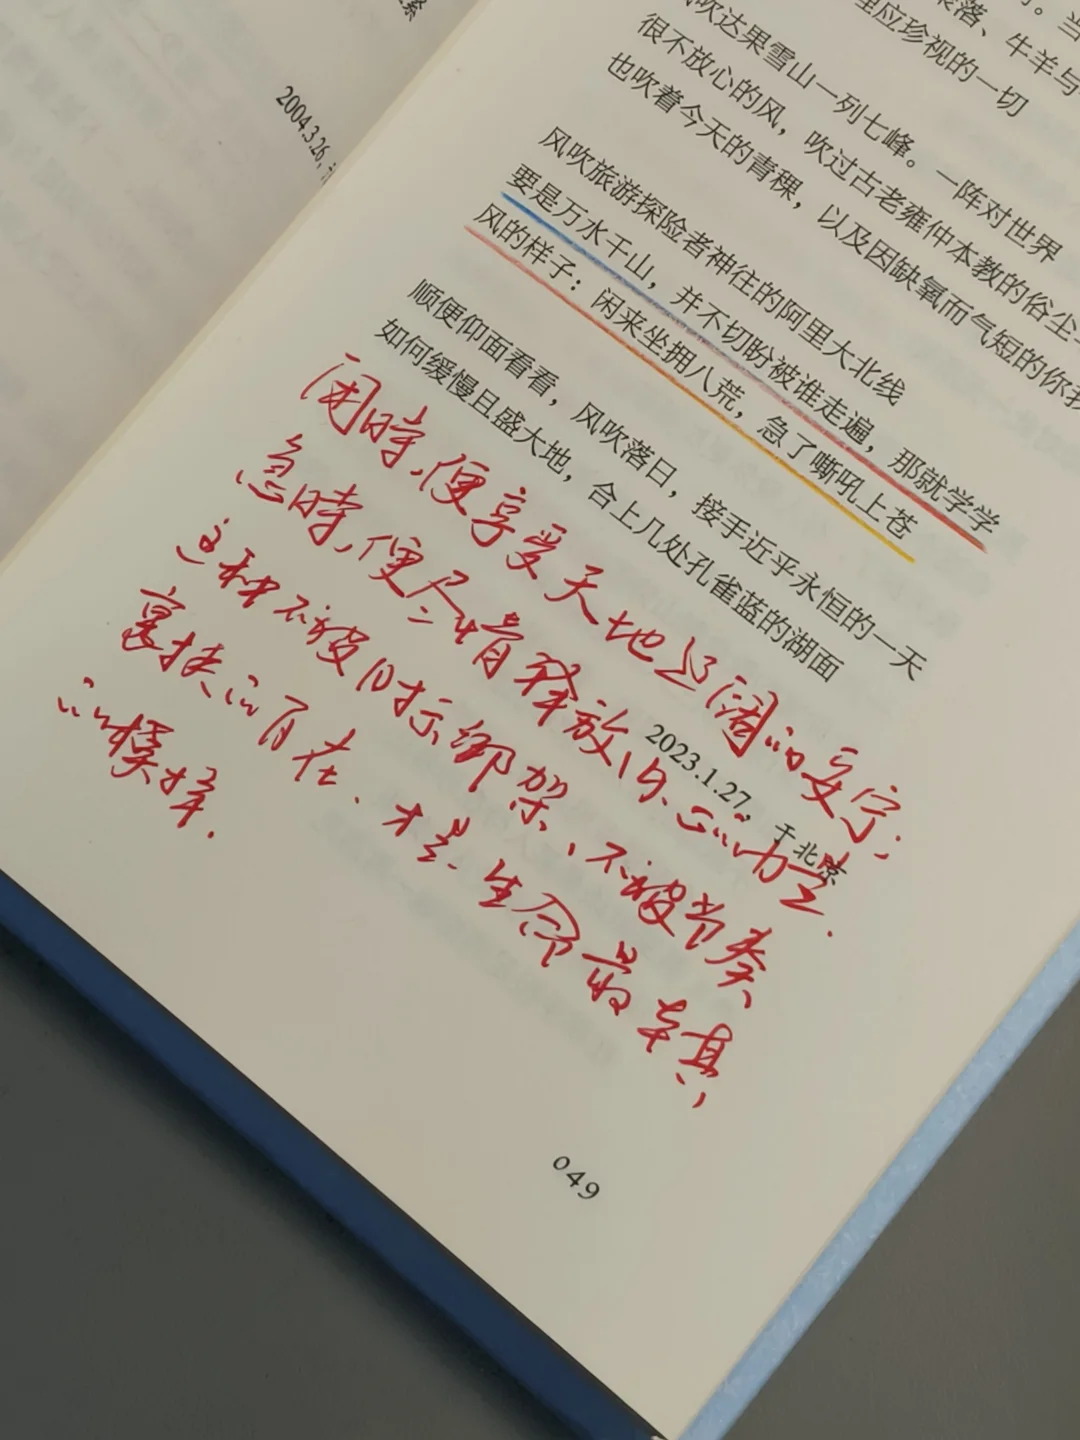 累
2004.3.26,
。当
聚落、牛羊与
理应珍视的一切
吹达果雪山一列七峰。一阵对世界
很不放心的风，吹过古老雍仲本教的俗尘
也吹着今天的青稞，以及因缺氧而气短的你我
风吹旅游探险者神往的阿里大北线
要是万水千山，并不切盼被谁走遍，那就学学
风的样子：闲来坐拥八荒，急了嘶吼上苍
顺便仰面看看，风吹落日，接手近乎永恒的一天
如何缓慢且盛大地，合上几处孔雀蓝的湖面
2023.1.27，于北京
闲時，便享受天地辽阔的安宁；
急時，便尽情释放内心的力量.
这种不被目标绑架、不被节奏
裹挟的自在.才是生命最本真
的模样.
049